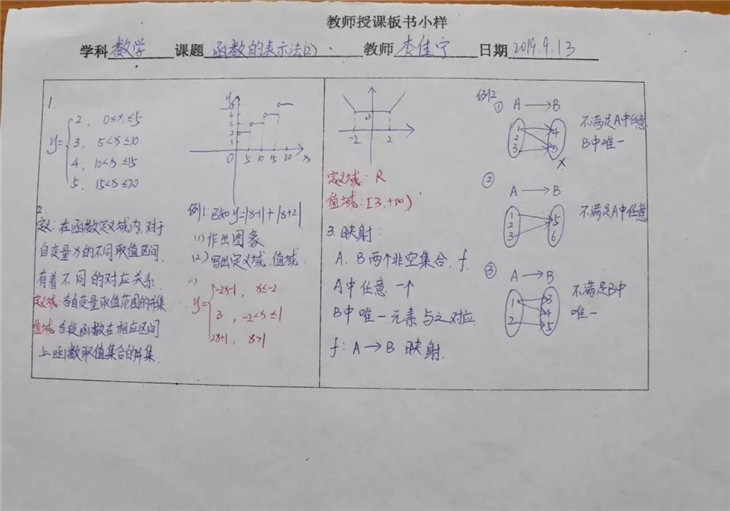 教师授课板书小样
学科 数学 课题 函数的表示法(2) 教师 李佳宁 日期 2019.9.13
1.
y={2, 0<x≤5
3, 5<x≤10
4, 10<x≤15
5, 15<x≤20
y
5
4
3
2
0 5 10 15 20 x
2.
定义:在函数定义域内,对于
自变量x的不同取值区间,
有着不同的对应关系.
定义域:各自变量取值范围的并集
值域:各段函数在相应区间
上函数取值集合的并集.
例1:已知y=|x-1|+|x+2|
(1)作出图象
(2)写出定义域.值域.
(1)
y={-2x-1, x≤-2
3, -2<x≤1
2x+1, x>1
3
-2 2
定义域:R
值域:[3,+∞)
3.映射:
A.B两个非空集合.f.
A中任意一个
B中唯一元素与之对应
f:A→B 映射.
例2
① A→B
1 4
2
3 5
不满足A中任意
B中唯一
② A→B
1
2 5
3 6
不满足A中任意
③ A→B
1 3
4
2 5
不满足B中
唯一